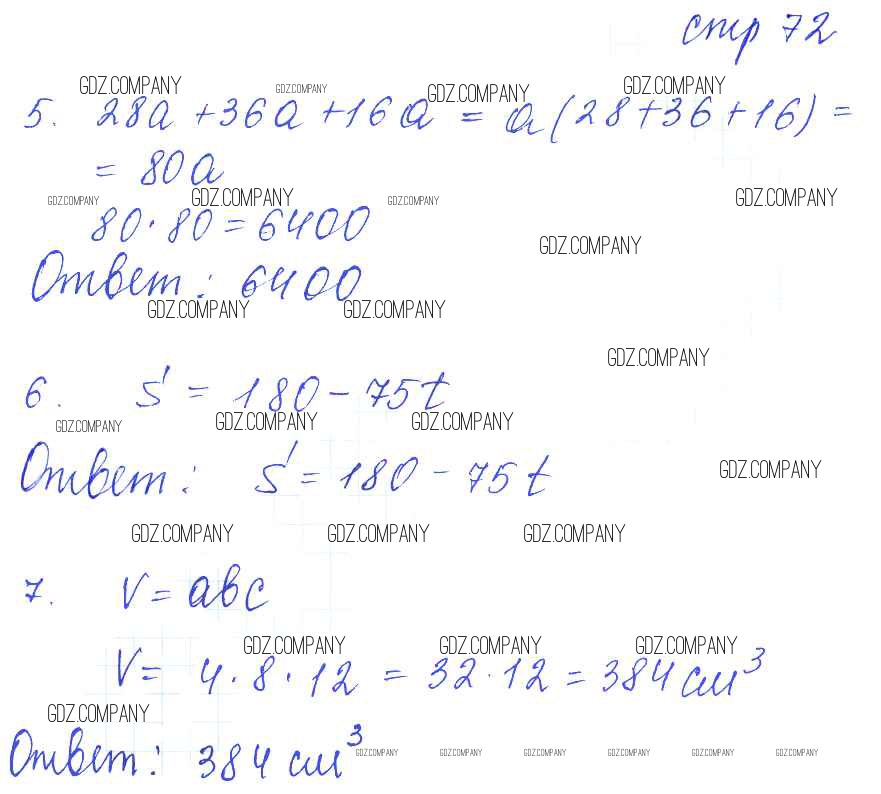 стр 72
GDZ.COMPANY GDZ.COMPANY GDZ.COMPANY GDZ.COMPANY
5. 28a + 36a + 16a = a(28 + 36 + 16) =
= 80a
GDZ.COMPANY GDZ.COMPANY GDZ.COMPANY GDZ.COMPANY
80 · 80 = 6400
GDZ.COMPANY
Ответ: 6400
GDZ.COMPANY GDZ.COMPANY
GDZ.COMPANY
6. S = 180 - 75t
GDZ.COMPANY GDZ.COMPANY GDZ.COMPANY
Ответ: S = 180 - 75t
GDZ.COMPANY
GDZ.COMPANY GDZ.COMPANY GDZ.COMPANY
7. V = abc
GDZ.COMPANY GDZ.COMPANY GDZ.COMPANY
V = 4 · 8 · 12 = 32 · 12 = 384 см³
GDZ.COMPANY
Ответ: 384 см³
GDZ.COMPANY GDZ.COMPANY GDZ.COMPANY GDZ.COMPANY GDZ.COMPANY GDZ.COMPANY